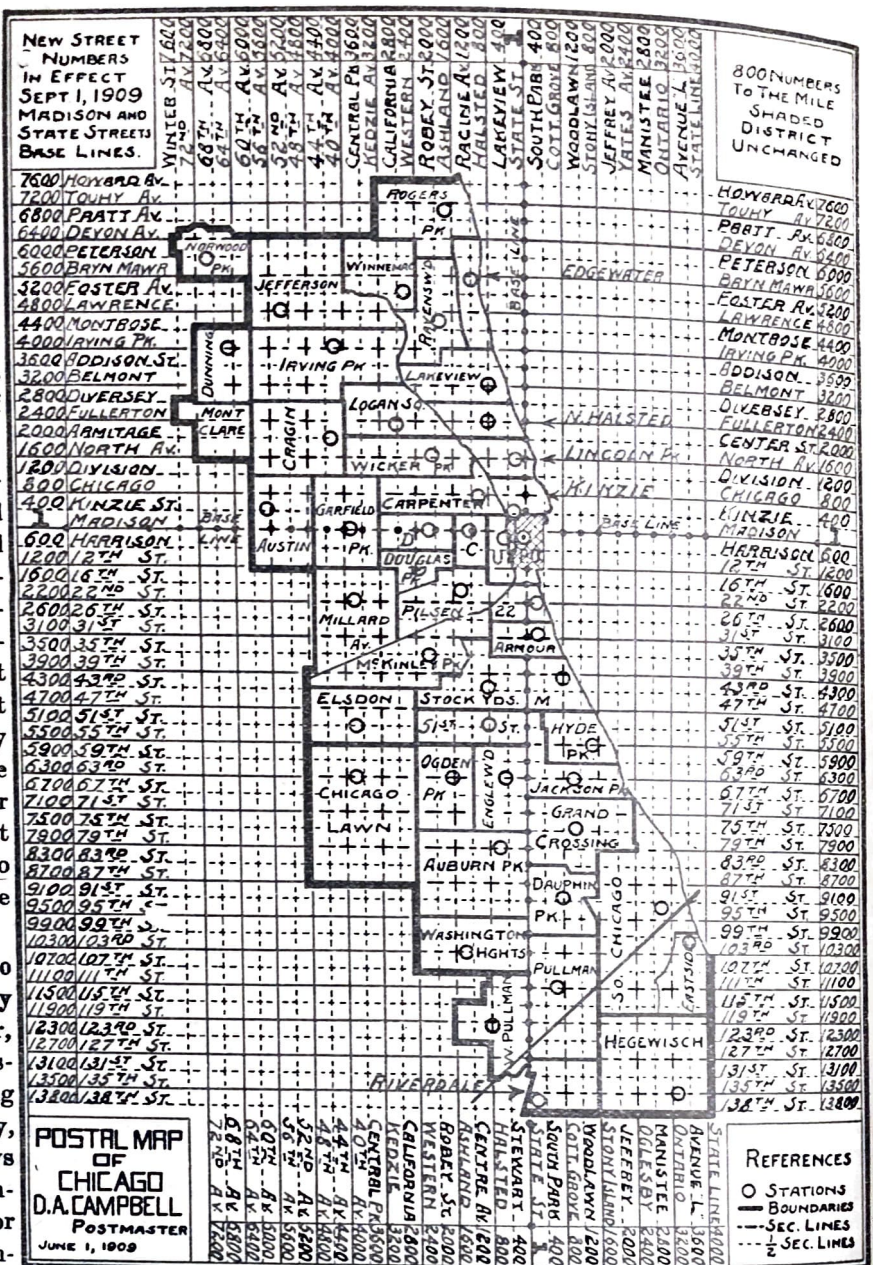 NEW STREET
NUMBERS
IN EFFECT
SEPT 1, 1909
MADISON AND
STATE STREETS
BASE LINES.
WINTER ST 7600
72ND AV. 7200
68TH AV. 6800
64TH AV. 6400
60TH AV. 6000
56TH AV. 5600
52ND AV. 5200
48TH AV. 4800
44TH AV. 4400
40TH AV. 4000
CENTRAL PK 3600
KEDZIE AV 3200
CALIFORNIA 2800
WESTERN 2400
ROBEY ST. 2000
ASHLAND 1600
RACINE AV. 1200
HALSTED 800
LAKEVIEW 400
STATE ST. 1
SOUTH PARK 400
COTT GROVE 800
WOODLAWN 1200
STONY ISLAND
JEFFREY AV 2000
YATES AV. 2400
MANISTEE 2800
ONTARIO 3200
AVENUE L 3600
STATE LINE 4000
800 NUMBERS
TO THE MILE
SHADED
DISTRICT
UNCHANGED
7600 HOWARD AV.
7200 TOUHY AV.
6800 PRATT AV.
6400 DEVON AV.
6000 PETERSON
5600 BRYN MAWR
5200 FOSTER AV.
4800 LAWRENCE
4400 MONTROSE
4000 IRVING PK.
3600 ADDISON ST.
3200 BELMONT
2800 DIVERSEY
2400 FULLERTON
2000 ARMITAGE
1600 NORTH AV.
1200 DIVISION
800 CHICAGO
400 KINZIE ST.
1 MADISON
600 HARRISON
1200 12TH ST.
1600 16TH ST.
2200 22ND ST.
2600 26TH ST.
3100 31ST ST.
3500 35TH ST.
3900 39TH ST.
4300 43RD ST.
4700 47TH ST.
5100 51ST ST.
5500 55TH ST.
5900 59TH ST.
6300 63RD ST.
6700 67TH ST.
7100 71ST ST.
7500 75TH ST.
7900 79TH ST.
8300 83RD ST.
8700 87TH ST.
9100 91ST ST.
9500 95TH S
9900 99TH ST.
10300 103RD ST.
10700 107TH ST.
11100 111TH ST.
11500 115TH ST.
11900 119TH ST.
12300 123RD ST.
12700 127TH ST.
13100 131ST ST.
13500 135TH ST.
13800 138TH ST.
ROGERS
PK
NORWOOD
PK
JEFFERSON
WINNEMAC
RAVENSW'D
BASE LINE
EDGEWATER
DUNNING
IRVING PK
LAKEVIEW
MONT
CLARE
CRAGIN
LOGAN SQ.
N. HALSTED
WICKER PK
LINCOLN PK
CARPENTER
KINZIE
BASE
LINE
AUSTIN
GARFIELD
PK.
D
C
U
BASE LINE
DOUGLAS
PK
MILLARD
AV.
PILSEN
22
ARMOUR
MCKINLEY PK
ELSDON
STOCK YDS.
M
51ST ST.
HYDE
PK
CHICAGO
LAWN
OGDEN
PK
ENGLEW'D
JACKSON PK
GRAND
CROSSING
AUBURN PK
DAUPHIN
PK.
SO. CHICAGO
WASHINGTON
HGHTS
PULLMAN
EASTSIDE
W. PULLMAN
HEGEWISCH
RIVERDALE
HOWARD AV 7600
TOUHY AV 7200
PRATT AV. 6800
DEVON AV. 6400
PETERSON 6000
BRYN MAWR 5600
FOSTER AV. 5200
LAWRENCE 4800
MONTROSE 4400
IRVING PK. 4000
ADDISON 3600
BELMONT 3200
DIVERSEY 2800
FULLERTON 2400
CENTER ST. 2000
NORTH AV. 1600
DIVISION 1200
CHICAGO 800
KINZIE 400
MADISON 1
HARRISON 600
12TH ST. 1200
16TH ST. 1600
22ND ST. 2200
26TH ST. 2600
31ST ST. 3100
35TH ST. 3500
39TH ST. 3900
43RD ST. 4300
47TH ST. 4700
51ST ST. 5100
55TH ST. 5500
59TH ST. 5900
63RD ST. 6300
67TH ST. 6700
71ST ST. 7100
75TH ST. 7500
79TH ST. 7900
83RD ST. 8300
87TH ST. 8700
91ST ST. 9100
95TH ST. 9500
99TH ST. 9900
103RD ST. 10300
107TH ST. 10700
111TH ST. 11100
115TH ST. 11500
119TH ST. 11900
123RD ST. 12300
127TH ST. 12700
131ST ST. 13100
135TH ST. 13500
138TH ST. 13800
POSTAL MAP
OF
CHICAGO
D.A. CAMPBELL
POSTMASTER
JUNE 1, 1909
72ND AV. 7200
68TH AV. 6800
64TH AV. 6400
60TH AV. 6000
56TH AV. 5600
52ND AV. 5200
48TH AV. 4800
44TH AV. 4400
40TH AV. 4000
CENTRAL PK 3600
KEDZIE 3200
CALIFORNIA 2800
WESTERN 2400
ROBEY ST. 2000
ASHLAND 1600
CENTRE AV. 1200
HALSTED 800
STEWART 400
STATE ST. 1
SOUTH PARK 400
COTT. GROVE 800
WOODLAWN 1200
STONY ISLAND 1600
JEFFREY 2000
OGLESBY 2400
MANISTEE 2800
ONTARIO 3200
AVENUE "L" 3600
STATE LINE 4000
REFERENCES
STATIONS
BOUNDARIES
SEC. LINES
1/2 SEC. LINES